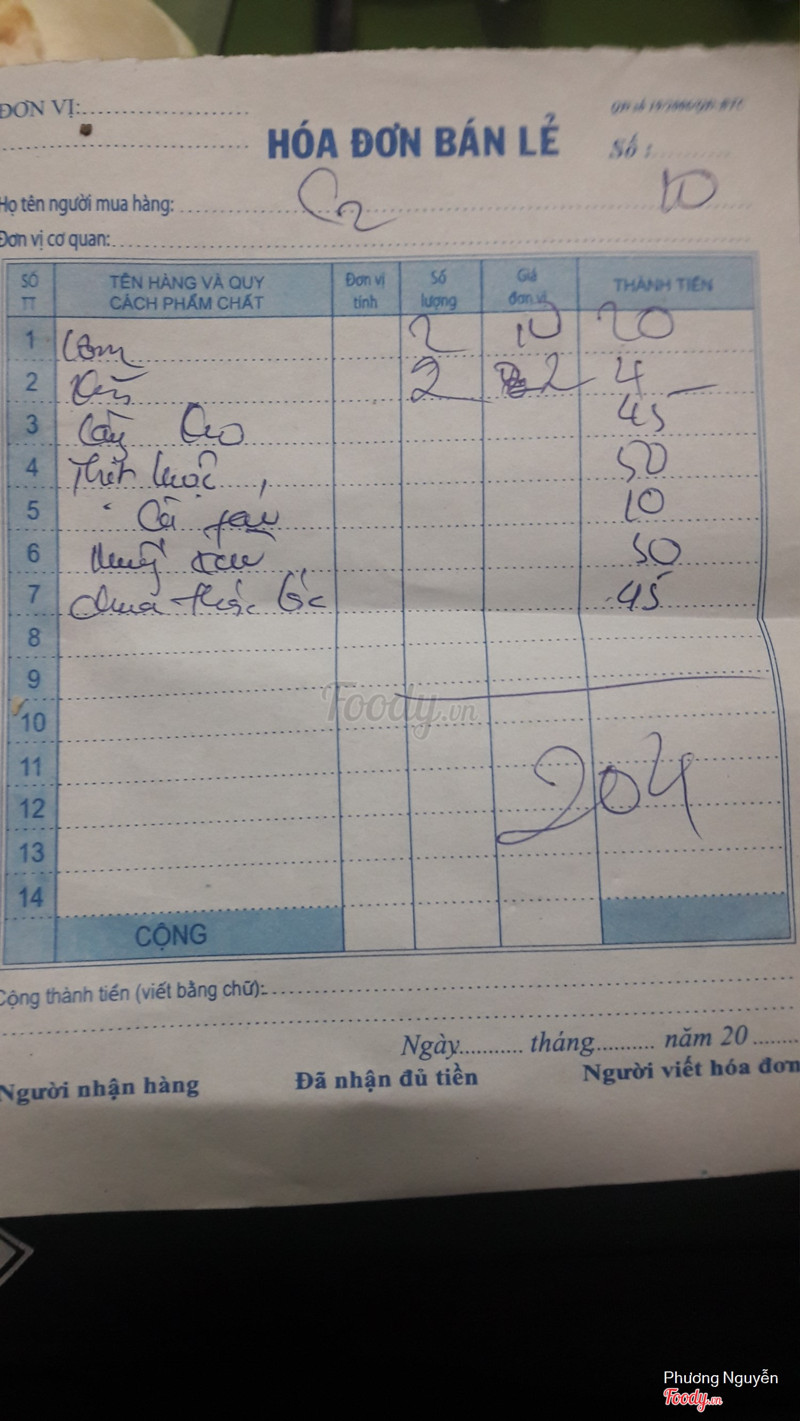 ĐƠN VỊ:
HÓA ĐƠN BÁN LẺ
Số :
Họ tên người mua hàng: C2 10
Đơn vị cơ quan:
SỐ TT TÊN HÀNG VÀ QUY CÁCH PHẨM CHẤT Đơn vị tính Số lượng Giá đơn vị THÀNH TIỀN
1 Cơm 2 10 20
2 2 2 4
3 45
4 Thịt luộc 50
5 Cà 10
6 xào 50
7 chua thác lác 45
8
9
10
11
12
13
14
204
CỘNG
Cộng thành tiền (viết bằng chữ):
Ngày tháng năm 20
Người nhận hàng Đã nhận đủ tiền Người viết hóa đơn
Foody.vn
Phương Nguyễn
Foody.vn